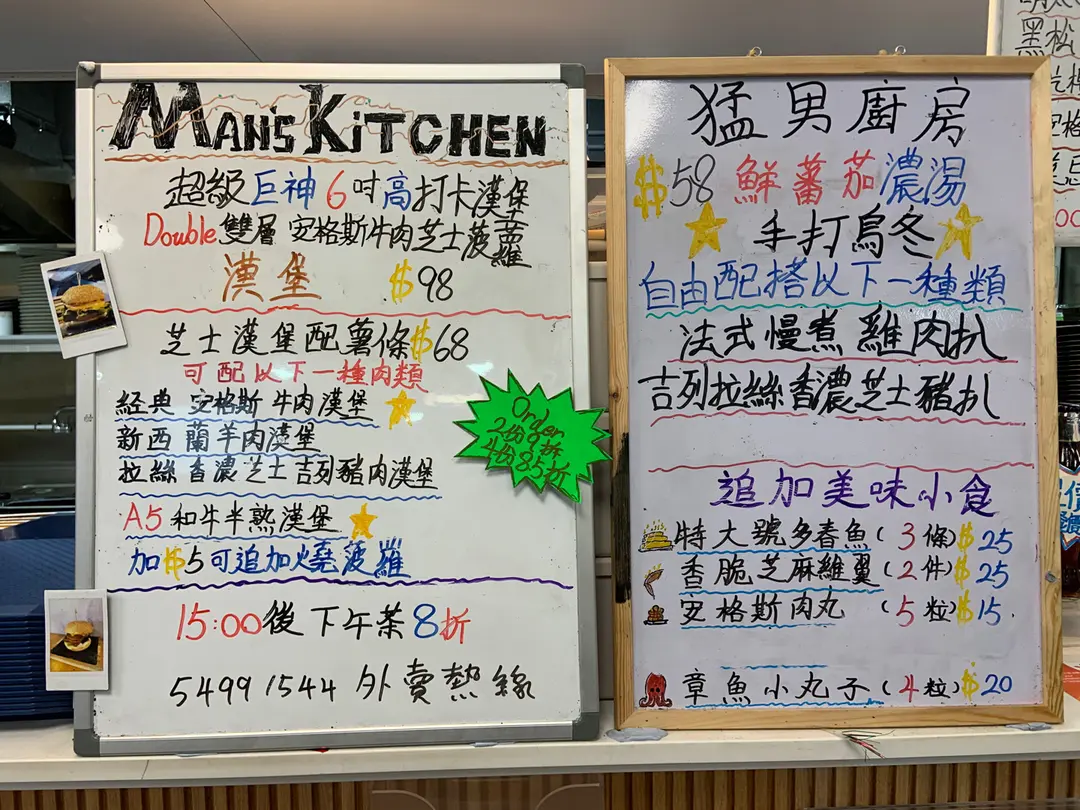 MAN'S KITCHEN
超級巨神6吋高打卡漢堡
Double 雙層 安格斯牛肉芝士菠蘿
漢堡 $98
芝士漢堡配薯條$68
可配以下一種肉類
經典 安格斯 牛肉漢堡
新西蘭羊肉漢堡
拉絲香濃芝士吉列豬肉漢堡
A5和牛半熟漢堡
加$5可追加燒菠蘿
15:00後下午茶8折
54991544 外賣熱線
Order
2份9折
4份85折
猛男廚房
$58 鮮蕃茄濃湯
手打鳥冬
自由配搭以下一種類
法式慢煮雞肉扒
吉列拉絲香濃芝士豬扒
追加美味小食
特大號多春魚(3條)$25
香脆芝麻維翼(2件)$25
安格斯肉丸 (5粒)$15.
章魚小丸子(4粒)$20
黑松